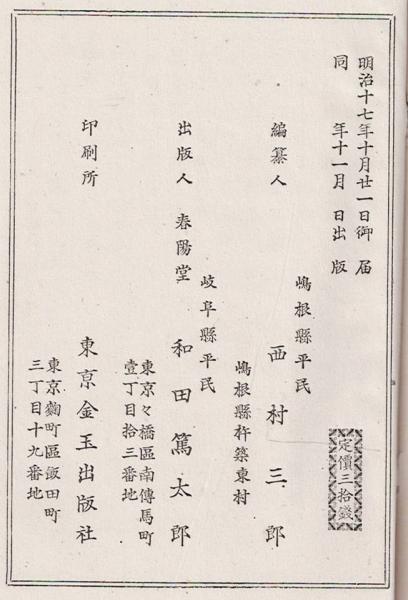 明治十七年十月廿一日御届
同　年十一月　日出版
定價三拾錢
嶋根縣平民
編纂人　西村三郎
嶋根縣杵築東村
岐阜縣平民
出版人　春陽堂　和田篤太郎
東京々橋區南傳馬町
壹丁目拾三番地
印刷所　東京金玉出版社
東京麴町區飯田町
三丁目十九番地